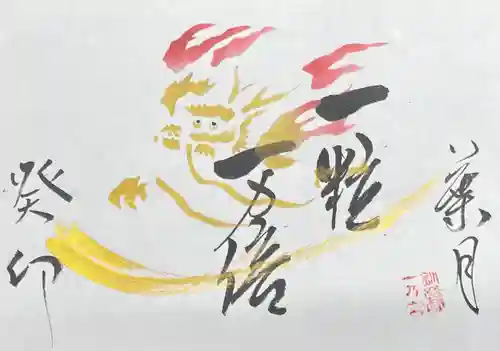 葉月
一粒
万倍
癸卯